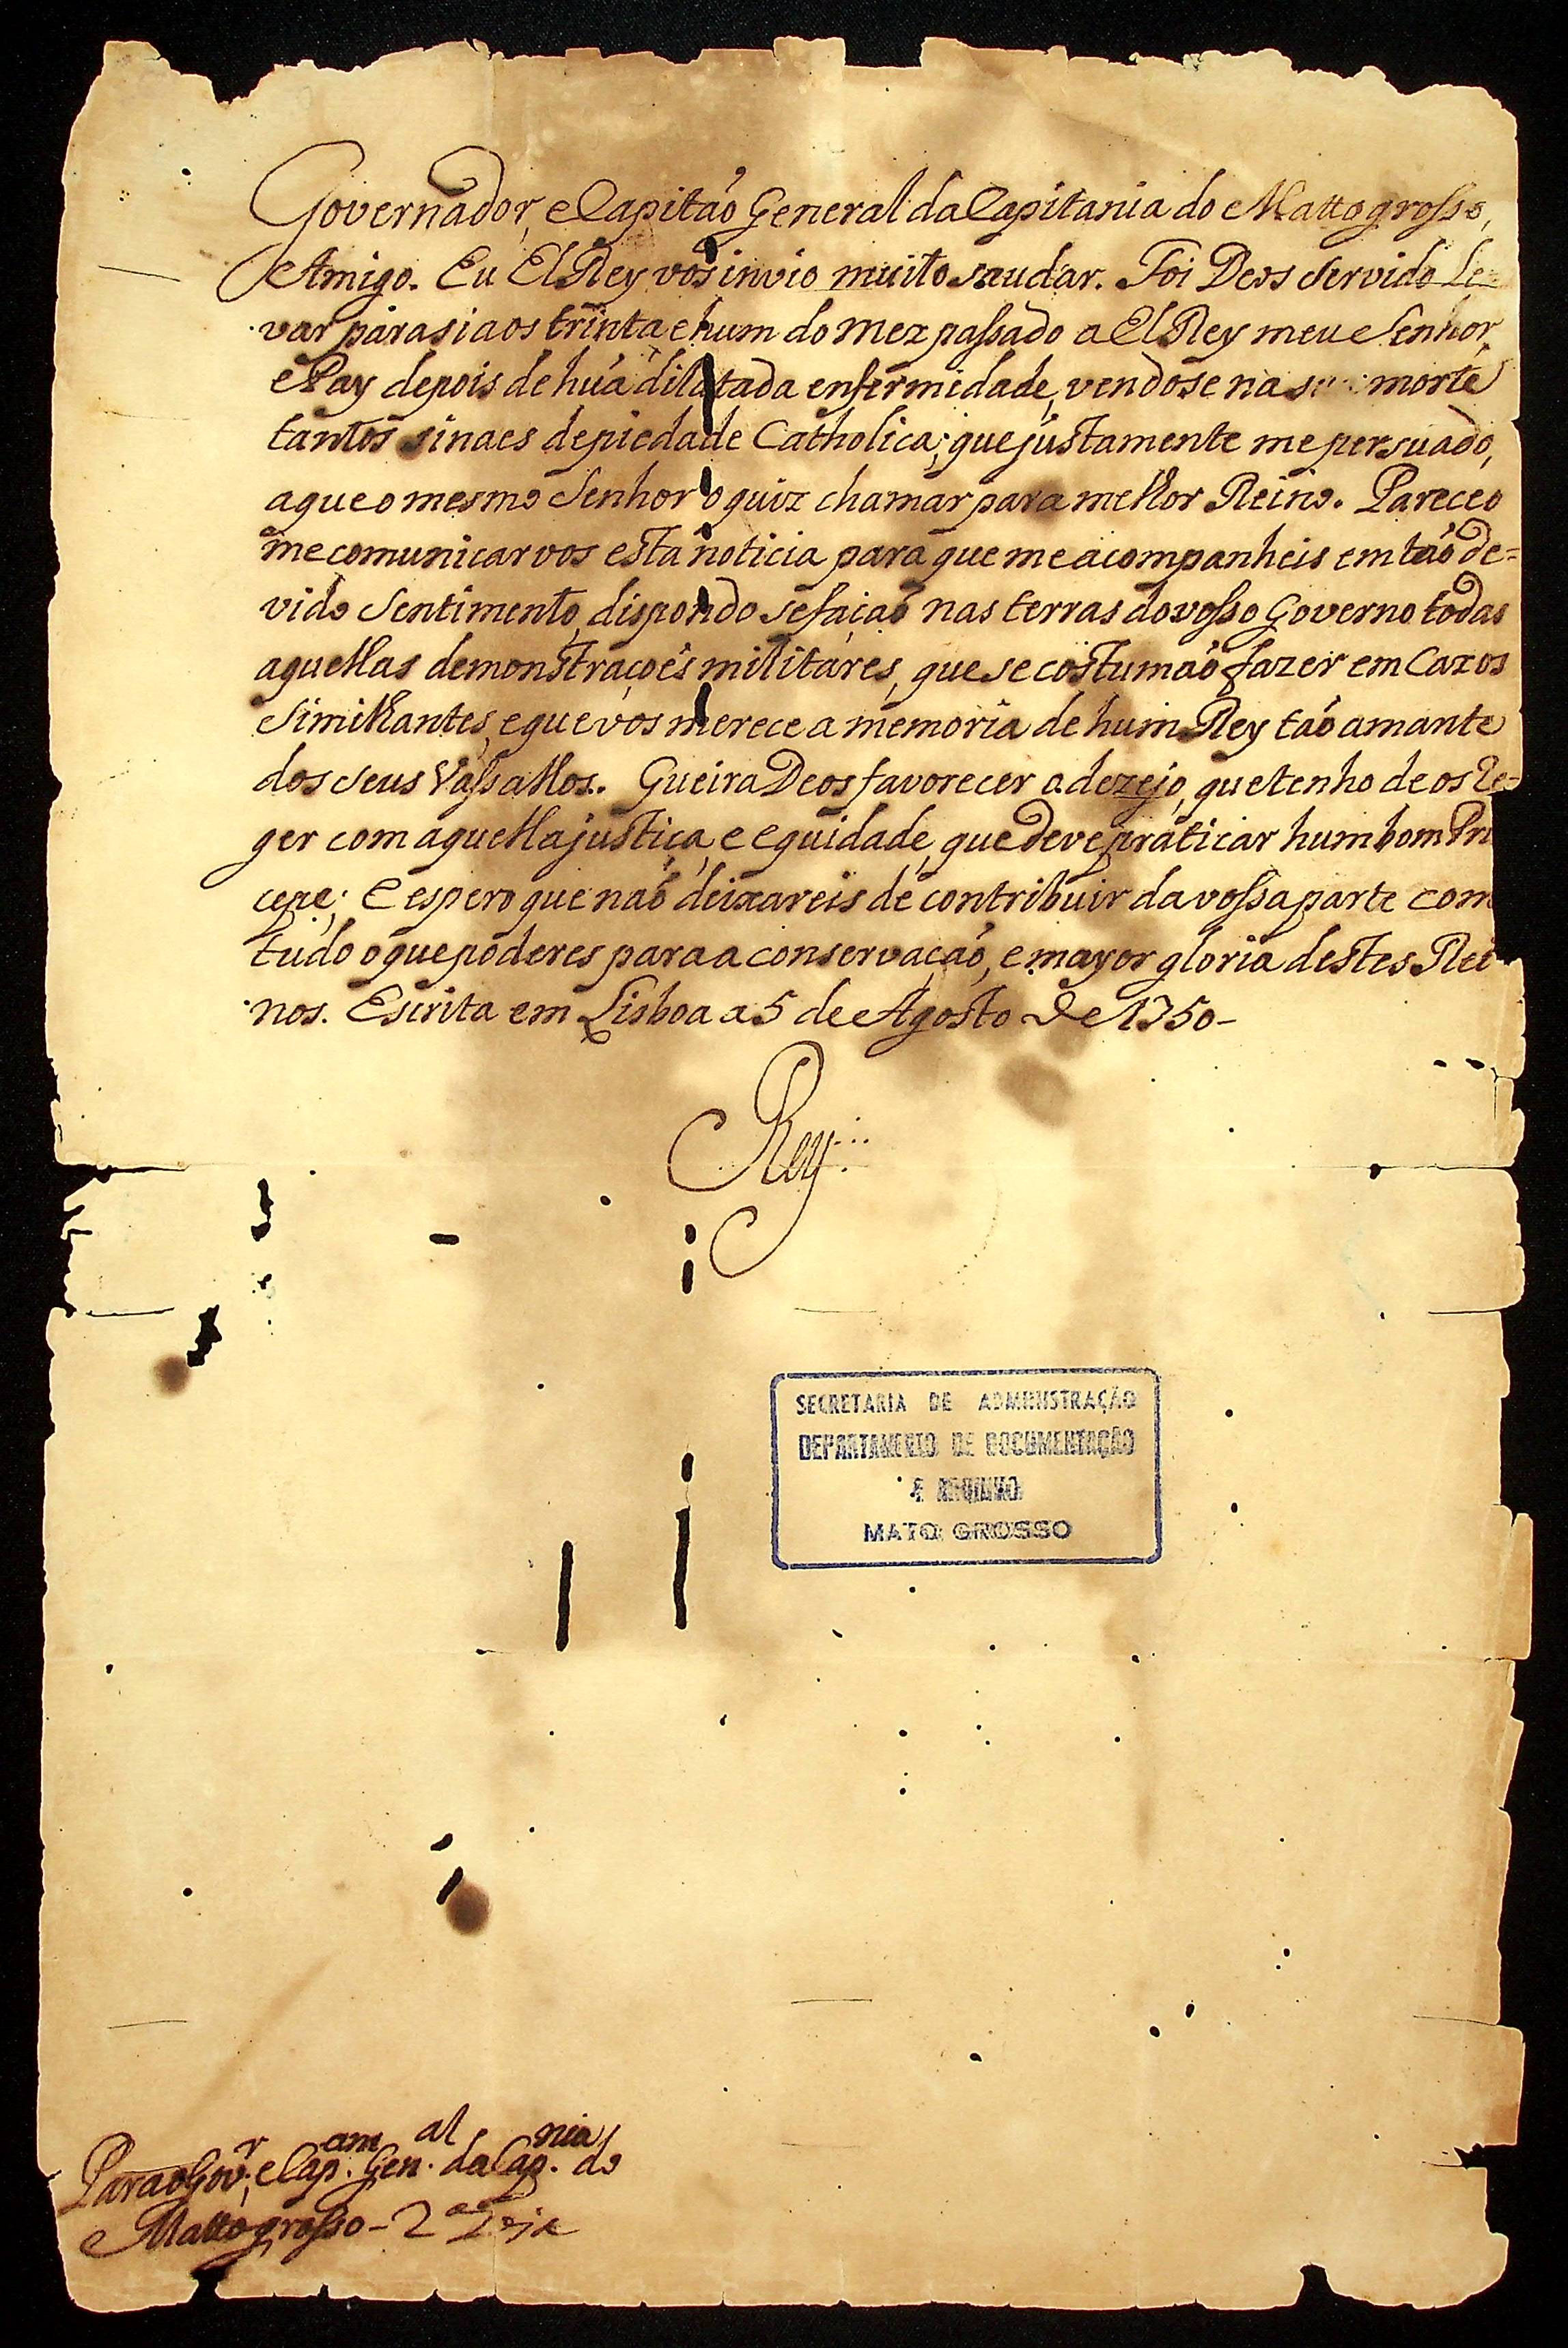 Governador, e Capitão General da Capitania do Mattogrosso,
Amigo. Eu ElRey vos invio muito saudar. Foi Deos servido Le-
var para si aos trinta e hum do mez passado a ElRey meu Senhor,
e Pay depois de huã dilatada enfermidade, vendose na morte
tantos sinaes de piedade Catholica; que justamente me persuado,
a que o mesmo Senhor o quiz chamar para melhor Reino. Pareceo
me comunicarvos esta noticia para que me acompanheis em taõ de=
vido sentimento, dispondo se façaõ nas terras do vosso Governo todas
aquellas demonstraçoẽs militares, que se costumaõ fazer em Cazos
similhantes, e que vos merece a memoria de hum Rey taõ amante
dos seus Vassallos. Queira Deos favorecer o dezejo, que tenho de os re-
ger com aquella justiça, e equidade, que deve praticar hum bom Prin
cepe; e espero que naõ deixareis de contribuir da vossa parte com
tudo o que poderes para a conservaçaõ, e mayor gloria destes Rei
nos. Escrita em Lisboa a 5 de Agosto de 1750-
Rey
SECRETARIA DE ADMINISTRAÇÃO
DEPARTAMENTO DE DOCUMENTAÇÃO
E ARQUIVO
MATO GROSSO
Para o Gov.r, e Cap.am Gen.al da Cap.nia do
Mattogrosso - 2.a